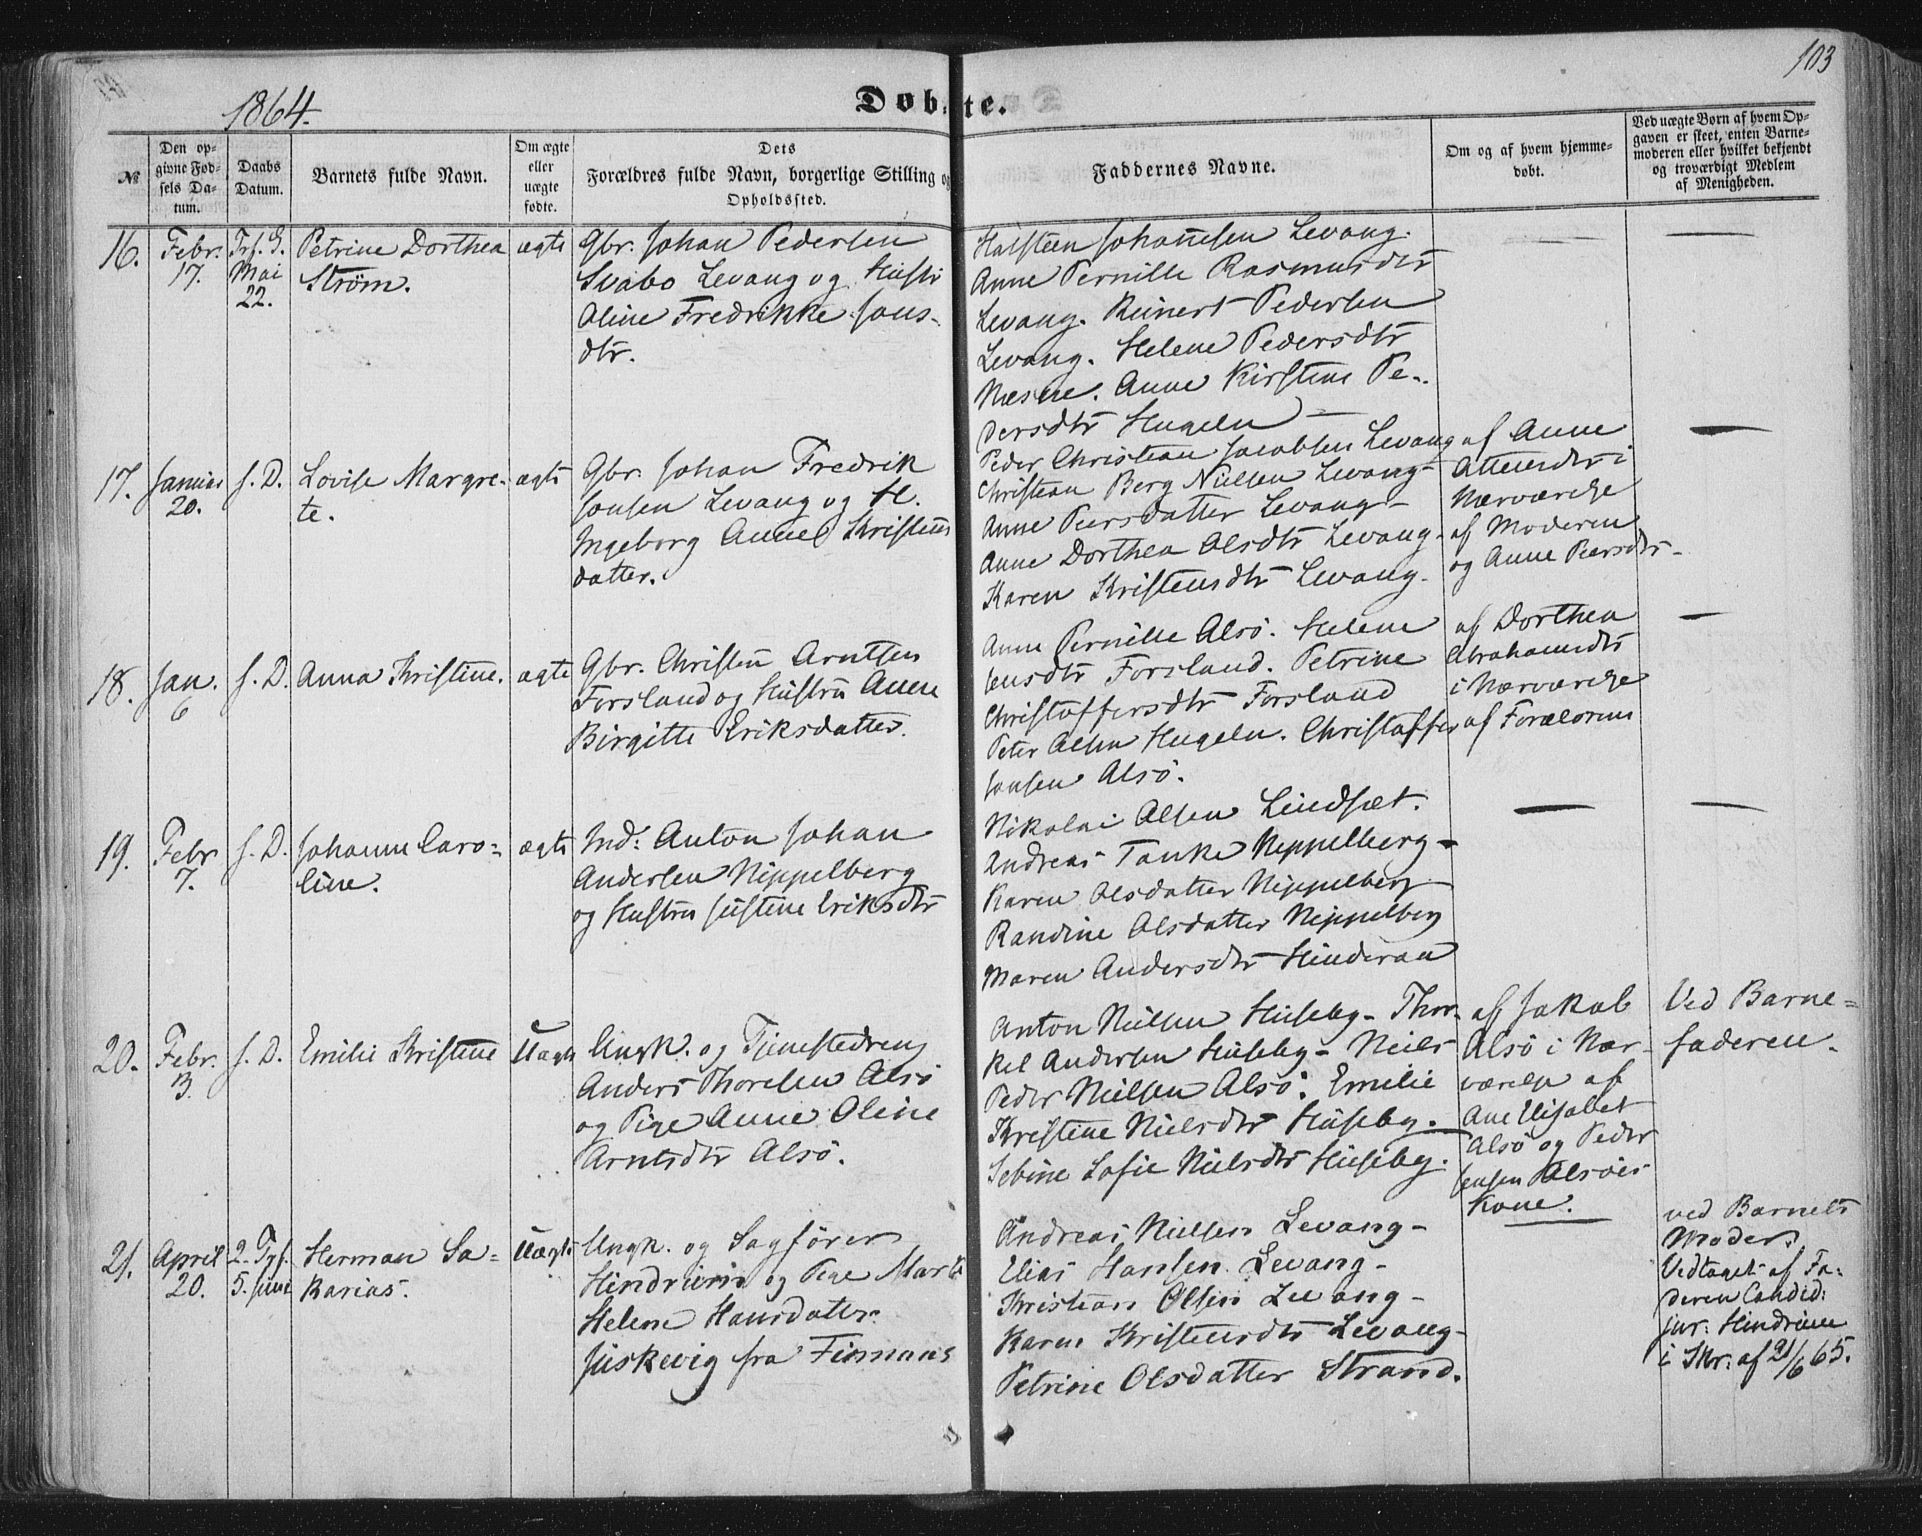 103
1864.
Døbte.
№
Den opgivne Fødsels Datum.
Daabs Datum.
Barnets fulde Navn.
Om ægte eller uægte fødte.
Dets Forældres fulde Navn, borgerlige Stilling og Opholdssted.
Faddernes Navne.
Om og af hvem hjemmedøbt.
Ved uægte Børn af hvem Opgaven er skeet, enten Barnemoderen eller hvilket bekjendt og troværdigt Medlem af Menigheden.
16.
Febr.
17.
Trf. S.
Mai
22.
Petrine Dorthea
Strøm.
ægte
Gbr. Johan Pedersen
Svabo Levang og Hustr
Oline Fredrikke Jons-
dtr.
Halsteen Johannesen Levang.
Anne Pernille Rasmusdtr
Levang. Reinert Pedersen
Levang. Helene Pedersdtr
Næsne. Anne Kirstine Pe-
dersdtr Hugeln
17.
Januar
20.
s. D.
Lovise Margre-
te.
ægte
Gbr. Johan Fredrik
Jonsen Levang og H.
Ingeborg Anne Kristens
datter.
Peder Christian Jacobsen Levang
Christian Berg Nielsen Levang-
Anne Peersdatter Levang-
Anne Dorthea Olsdtr Levang-
Karen Kristensdtr Levang.
af Anne
Ottersdtr i
Nærværelse
af Moderen
og Anne Peersdtr-
18.
Jan.
6
s. D.
Anna Kristine.
ægte
Gbr. Christen Arntsen
Forsland og Hustru Anne
Birgitte Eriksdatter.
Anne Pernille Alsø. Helene
Jensdtr Forsland. Petrine
Christoffersdtr Forsland
Peter Olsen Hugeln. Christoffer
Jonsen Alsø.
af Dorthea
Abrahamsdtr
i Nærværelse
af Forældrene
19.
Febr
7.
s. D.
Johanne Caro-
line.
ægte
Ind: Anton Johan
Andersen Nippelberg
og Hustru Justine Eriksdtr
Nikolai Olsen Lindset.
Andreas Tanke Neppelberg-
Karen Olsdatter Nippelberg
Randine Olsdatter Nippelberg
Maren Andersdtr Hinderan
20.
Febr.
13.
s. D.
Emilie Kristine
Uægte
Ungk. og Tjenestedreng
Anders Thoresen Alsø
og Pige Anne Oline
Arntsdtr Alsø.
Anton Nielsen Huseby- Thor-
kel Andersen Huseby- Neils
Peder Nielsen Alsø. Emilie
Kristine Nielsdtr Huseby.
Sebine Sofie Nielsdtr Huseby.
af Jakob
Alsø i Nær-
værelse af
Ane Elisabet
Alsø og Peder
Jensen Alsøes
Kone.
Ved Barne-
faderen.
21.
April
20.
2. Trf.
5. Juni
Herman Sa-
karias.
Uægte
Ungk. og Sagfører
Hindrum og Pige Mart
Helene Hansdatter
Juskevig fra Finmark
Andreas Nielsen Levang-
Elias Hansen Levang-
Kristian Olsen Levang-
Karen Kristensdtr Levang-
Petrine Olsdatter Strand.
ved Barnets
Moder.
Vedtaget af Fa-
deren Candid:
jur: Hindrum
i Skr: af 2/6 65.